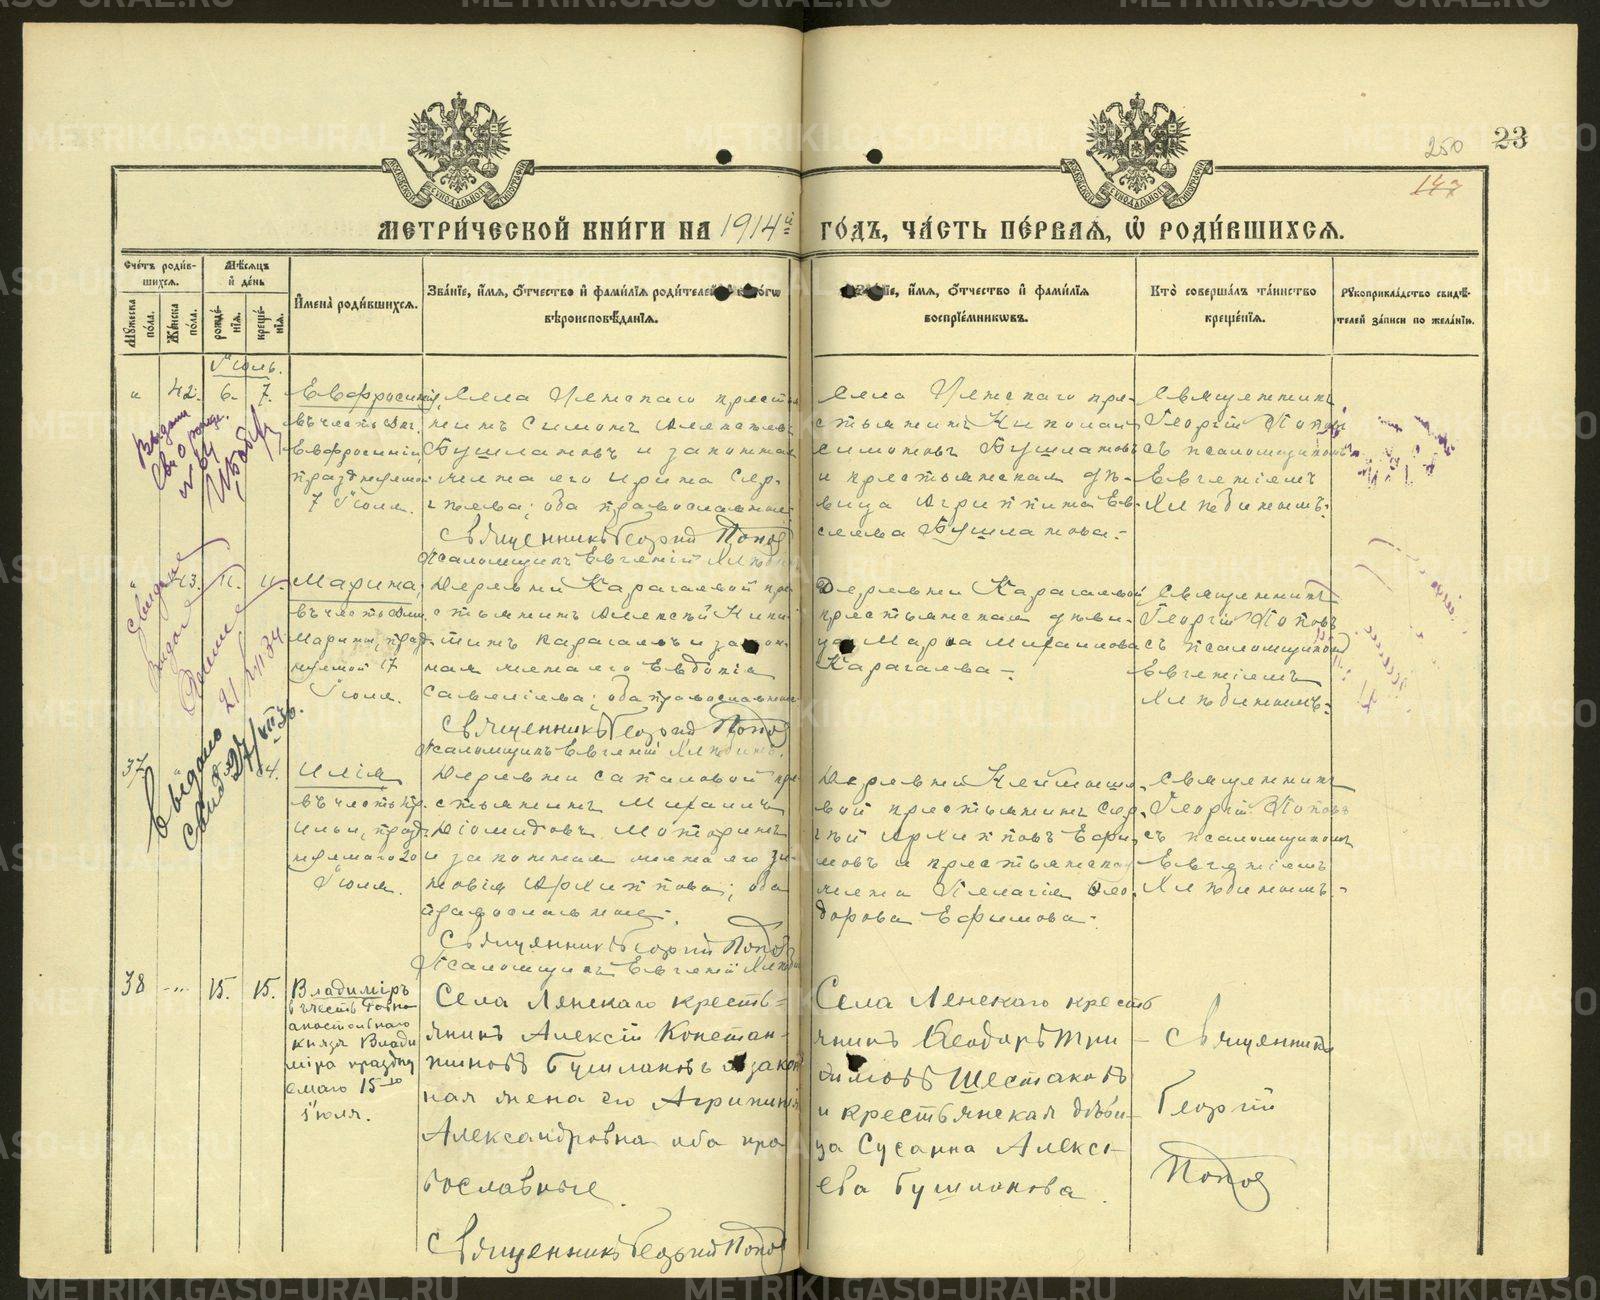 23
250
147
МЕТРИ́ЧЕСКОЙ КНИ́ГИ НА 1914й ГО́ДЪ, ЧА́СТЬ ПЕ́РВАѦ, Ѡ҆ РОДИ́ВШИХСѦ.
Сче́тъ роди́в-
шихсѧ.
Мѣ́сѧцъ
и҆ де́нь
Мꙋ́жеска по́ла.
Же́нска по́ла.
рожде́-
нїѧ.
креще́-
нїѧ.
И҆мена̀ роди́вшихсѧ.
Зва́нїе, и҆́мѧ, ѻ҆́тчество и҆ фами́лїѧ роди́телей
вѣроисповѣ́данїѧ.
и҆́мѧ, ѻ҆́тчество и҆ фами́лїѧ
воспрїе́мникѡвъ.
Кто̀ соверша́лъ та́инство
креще́нїѧ.
Рꙋкоприкла́дство свидѣ́-
телей за́писи по жела́нїю.
Іюль.
42. 6. 7.
Евфросинія,
въ честь Вмч.
Евфросиніи,
празднуемой
7 Іюля.
Села крестья-
нинъ Симонъ Алексѣевъ
Бушлановъ и законная
жена его Ирина Сер-
гѣева; оба православные.
Священникъ Георгій Попов
Псаломщикъ Евгеній
Села кре-
стьянинъ Николай
Симоновъ Бушлановъ
и крестьянская дѣ-
вица Агриппина Ев-
сеева Бушланова.
Священникъ
Георгій Поповъ
съ псаломщикомъ
Евгеніемъ
Хлѣбинымъ.
43. 11. 11.
Марина,
въ честь Вмч.
Марины, празд-
нуемой 17
Іюля.
Деревни Карагаевой кре-
стьянинъ Алексѣй
Карагаевъ и закон-
ная жена его Евдокія
Савеліева; оба православные
Священникъ Георгій Попов
Псаломщикъ Евгеній
Деревни Карагаевой
крестьянская дѣви-
ца Марѳа Михаилова
Карагаева.
Священникъ
Георгій Поповъ
съ псаломщикомъ
Евгеніемъ
Хлѣбинымъ.
37
14.
Илія
въ честь Пр.
Иліи, празд-
нуемаго 20
Іюля.
Деревни Сапаловой кре-
стьянинъ Михаилъ
Діомидовъ
и законная жена его Зи-
новія Архиппова; оба
православные.
Священникъ Георгій Поповъ
Псаломщикъ Евгеній
Деревни
вой крестьянинъ Сер-
гѣй Архипповъ Ефи-
мовъ и крестьянская
жена Пелагія Ѳео-
дорова Ефимова.
Священникъ
Георгій Поповъ
съ псаломщикомъ
Евгеніемъ
Хлѣбинымъ.
38 15. 15.
Владиміръ
въ честь Равно
апостольнаго
князя Влади
міра праздну
емаго 15го
Іюля.
Села Ленскаго кресть-
янинъ Алексій Констан-
тиновъ Бушлановъ и закон
ная жена его Агрипина
Александровна оба пра
вославные.
Священникъ Георгій Попов
Села Ленскаго кресть
янинъ Ѳеодоръ
Шестаковъ
и крестьянская дѣви-
ца Сусанна Алексѣ-
ева Бушланова.
Священникъ
Георгій
Попов
Выдано
21/VII 34
Выдано
27/VII 36.